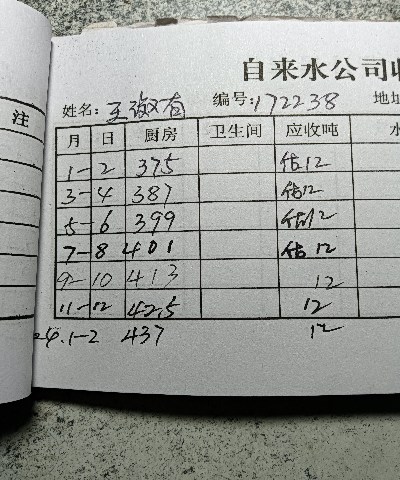 注
自来水公司收
姓名: 王淑有 编号: 172238 地址
月 日 厨房 卫生间 应收吨 水
1-2 375 估12
3-4 387 估12
5-6 399 估12
7-8 401 估12
9-10 413 12
11-12 425 12
24.1-2 437 12